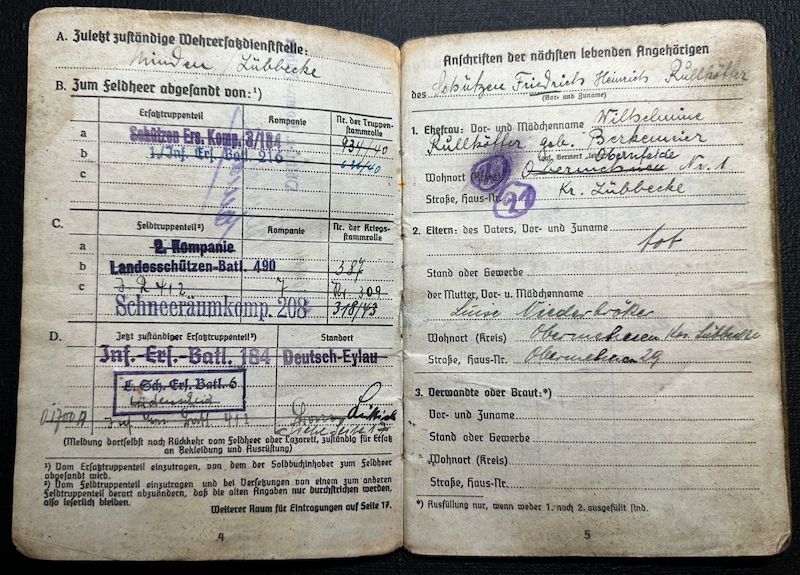 A. Zuletzt zuständige Wehrersatzdienststelle:
Minden / Lübbecke
B. Zum Feldheer abgesandt von:¹)
Ersatztruppenteil Kompanie Nr. der Truppenstammrolle
a Schützen Ers. Komp. 3/184 934/40
b 1./Inf. Ers. Batl. 216
c
C. Feldtruppenteil²) Kompanie Nr. der Kriegsstammrolle
a 2. Kompanie
b Landesschützen-Batl. 490 387
c J. R 412 7 Kr 309
Schneeräumkomp. 208 318/43
D. Jetzt zuständiger Ersatztruppenteil³) Standort
Inf.-Ers.-Batl. 184 Deutsch-Eylau
L. Sch. Ers. Batl. 6
Lüdenscheid
412
Siehe Seite 17
(Meldung dortselbst nach Rückkehr vom Feldheer oder Lazarett, zuständig für Ersatz
an Bekleidung und Ausrüstung)
¹) Vom Ersatztruppenteil einzutragen, von dem der Soldbuchinhaber zum Feldheer
abgesandt wird.
²) Vom Feldtruppenteil einzutragen und bei Versetzungen von einem zum anderen
Feldtruppenteil derart abzuändern, daß die alten Angaben nur durchstrichen werden,
also leserlich bleiben.
Weiterer Raum für Eintragungen auf Seite 17.
4
Anschriften der nächsten lebenden Angehörigen
des Schützen Friedrich Heinrich Kullkötter
(Vor- und Zuname)
1. Ehefrau: Vor- und Mädchenname Wilhelmine
Kullkötter geb. Berkemeier
(ggf. Vermerk "ledig") Obernfelde
Wohnort (Kreis) Obermehnen Nr. 1
Straße, Haus-Nr. Kr. Lübbecke
21
2. Eltern: des Vaters, Vor- und Zuname
tot
Stand oder Gewerbe
der Mutter, Vor- u. Mädchenname
Luise Niederbröker
Wohnort (Kreis) Obermehnen Krs. Lübbecke
Straße, Haus-Nr. Obermehnen 29
3. Verwandte oder Braut:*)
Vor- und Zuname
Stand oder Gewerbe
Wohnort (Kreis)
Straße, Haus-Nr.
*) Ausfüllung nur, wenn weder 1. noch 2. ausgefüllt sind.
5